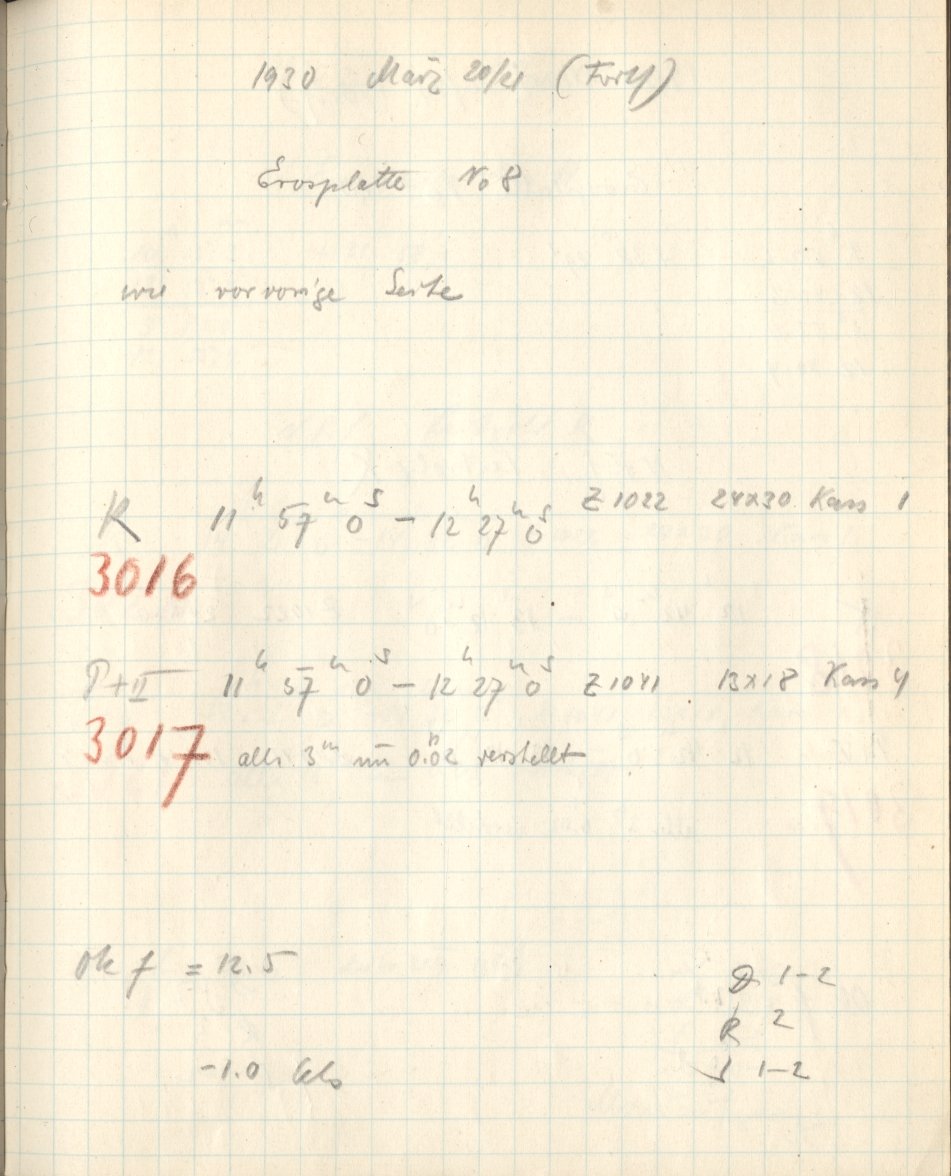 1930 März 20/21 (Forts)
Erosplatte No 8
wie vorvorige Seite
R 11h 57m 0s – 12h 27m 0s Z 1022 24x30 Kass 1
3016
P+II 11h 57m 0s – 12h 27m 0s Z 1041 13x18 Kass 4
3017 alle 3m um 0.02 verstellt
Ok f = 12.5
D 1–2
R 2
-1.0
J 1–2